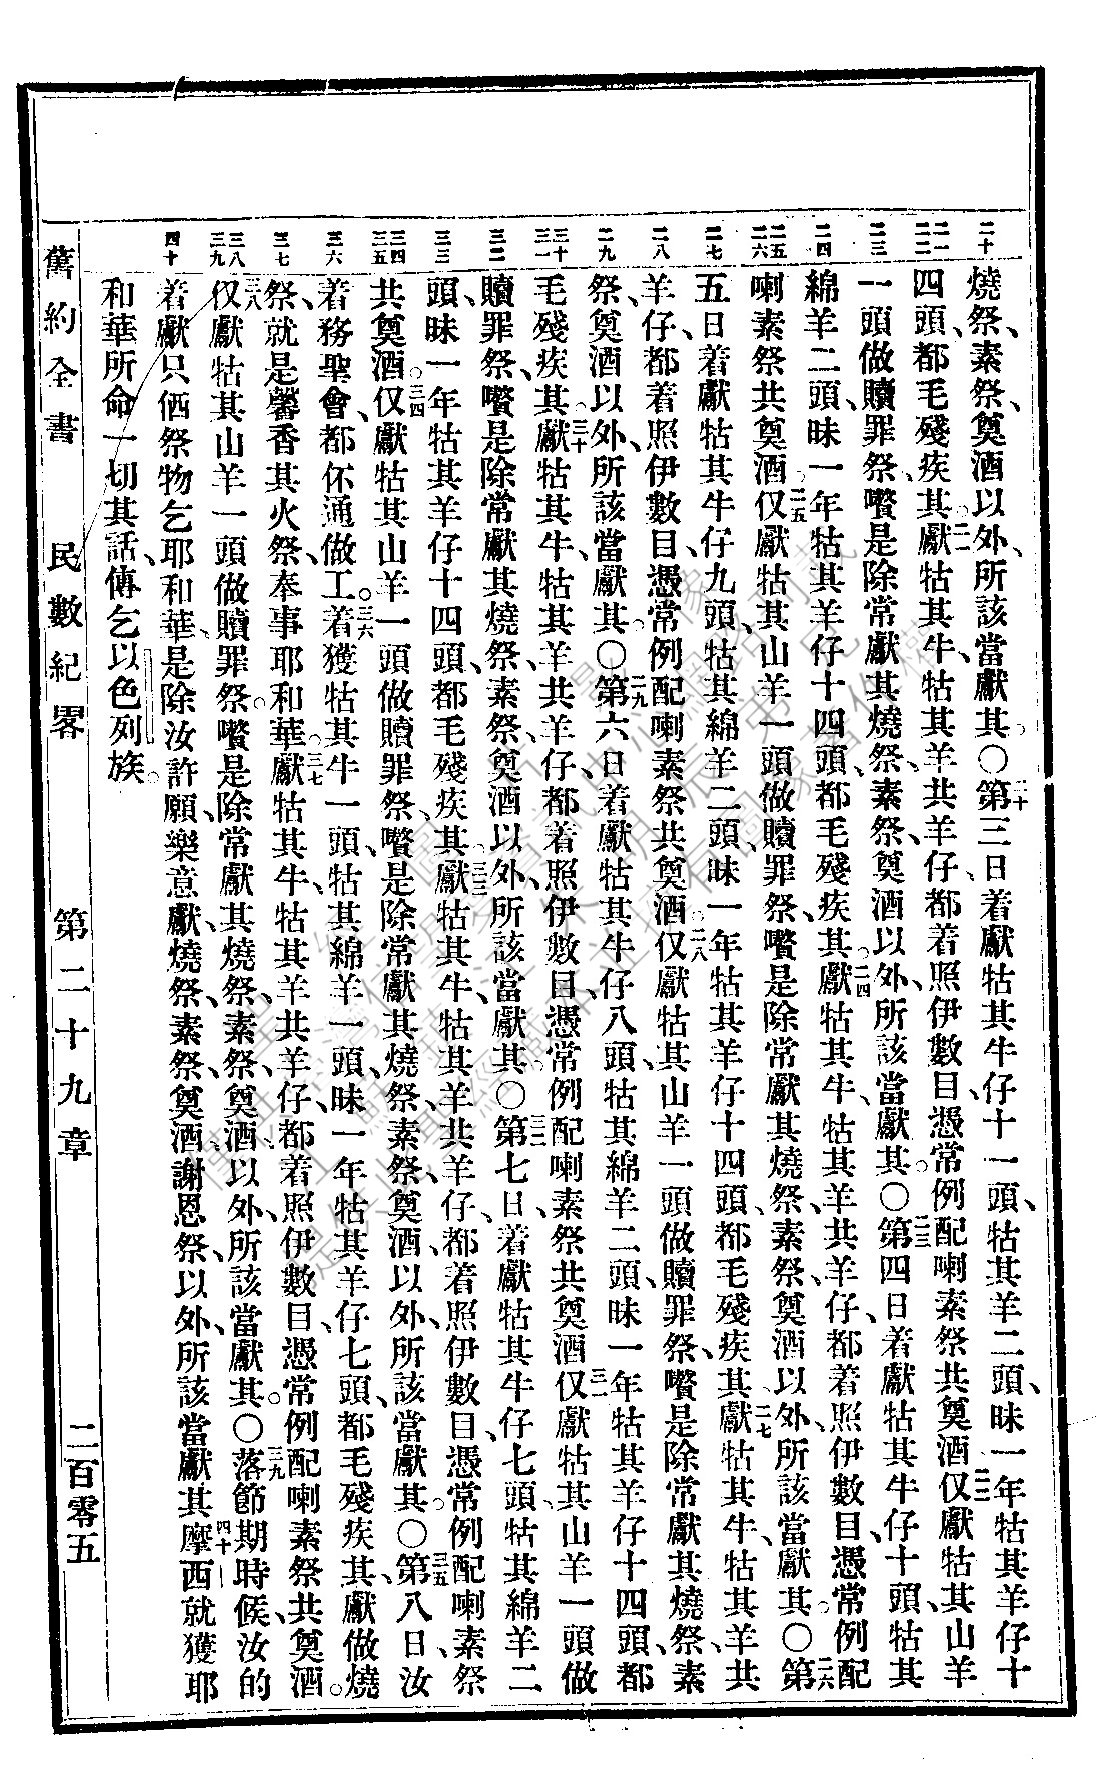 二十 二一 二二 二三 二四 二五 二六 二七 二八 二九 三十 三一 三二 三三 三四 三五 三六 三七 三八 三九 四十
燒祭、素祭、奠酒以外、所該當獻其。〇二十第三日着獻牯其牛仔十一頭、牯其羊二頭、昧一年牯其羊仔十
四頭、都毛殘疾其。二一獻牯其牛、牯其羊、共羊仔、都着照伊數目、憑常例配喇素祭共奠酒。二二仅獻牯其山羊
一頭做贖罪祭、嚽是除常獻其燒祭、素祭、奠酒以外、所該當獻其。〇二三第四日着獻牯其牛仔十頭、牯其
綿羊二頭、昧一年牯其羊仔十四頭、都毛殘疾其。二四獻牯其牛、牯其羊、共羊仔、都着照伊數目、憑常例配
喇素祭共奠酒。二五仅獻牯其山羊一頭做贖罪祭、嚽是除常獻其燒祭、素祭、奠酒以外、所該當獻其。〇二六第
五日着獻牯其牛仔九頭、牯其綿羊二頭、昧一年牯其羊仔十四頭、都毛殘疾其、二七獻牯其牛、牯其羊、共
羊仔、都着照伊數目、憑常例配喇素祭共奠酒。二八仅獻牯其山羊一頭做贖罪祭、嚽是除常獻其燒祭、素
祭、奠酒以外、所該當獻其。〇二九第六日着獻牯其牛仔八頭、牯其綿羊二頭、昧一年牯其羊仔十四頭、都
毛殘疾其。三十獻牯其牛、牯其羊、共羊仔、都着照伊數目、憑常例配喇素祭共奠酒、三一仅獻牯其山羊一頭做
贖罪祭、嚽是除常獻其燒祭、素祭、奠酒以外、所該當獻其。〇三二第七日着獻牯其牛仔七頭、牯其綿羊二
頭、昧一年牯其羊仔十四頭、都毛殘疾其。三三獻牯其牛、牯其羊、共羊仔、都着照伊數目、憑常例配喇素祭
共奠酒。三四仅獻牯其山羊一頭做贖罪祭、嚽是除常獻其燒祭、素祭、奠酒以外、所該當獻其。〇三五第八日汝
着務聖會、都伓通做工。三六着獲牯其牛一頭、牯其綿羊一頭、昧一年牯其羊仔七頭、都毛殘疾其、獻做燒
祭、就是馨香其火祭、奉事耶和華。三七獻牯其牛、牯其羊、共羊仔、都着照伊數目、憑常例配喇素祭共奠酒。
三八仅獻牯其山羊一頭做贖罪祭、嚽是除常獻其燒祭、素祭、奠酒以外、所該當獻其。〇三九落節期時候、汝的
着獻只仴祭物乞耶和華、是除汝許願樂意獻、燒祭、素祭、奠酒、謝恩祭以外、所該當獻其。四十摩西就獲耶
和華所命一切其話、傳乞以色列族。
舊約全書 民數紀畧 第二十九章 二百零五